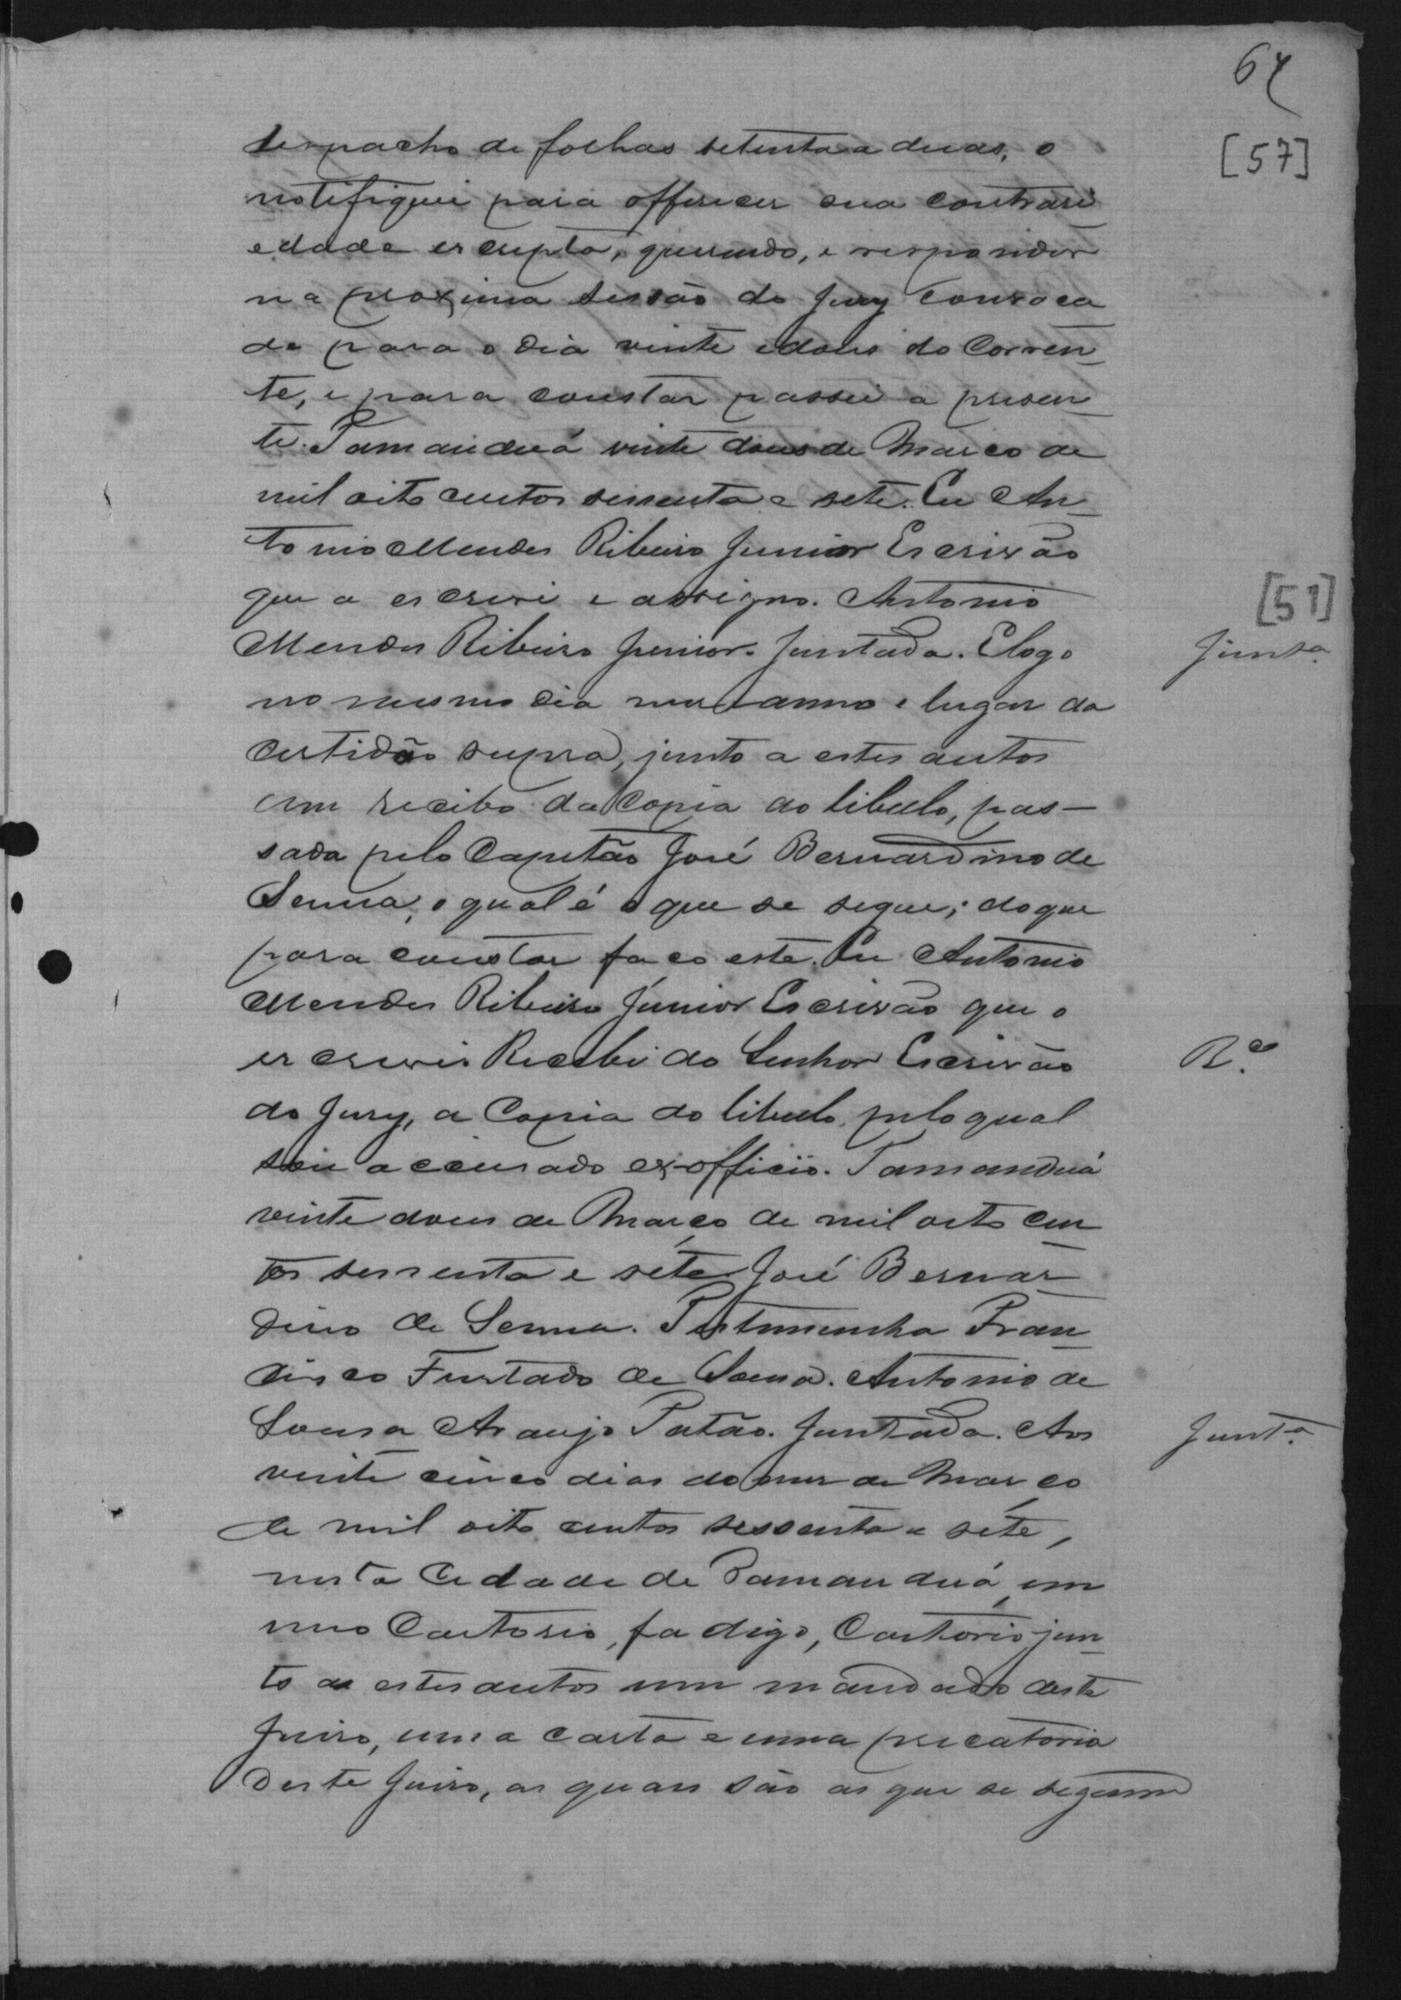 64
[57]
despacho de folhas setenta a duas, o
notifiquei para offerecer sua contrari
edade escripta, querendo, e responder
na proxima sessão do Jury convoca
da para o dia vinte e dous do corren_
te, e para constar passei a presen_
te. Tamanduá vinte dous de Março de
mil oito centos sessenta e sete. Eu An_
tonio Mendes Ribeiro Junior Escrivão
que a escrevi e assigno. Antonio
[51]
Mendes Ribeiro Junior. Juntada. E logo
Junta.
no mesmo dia mez anno e lugar da
certidão supra, junto a estes autos
um recibo da Copia do libello, pas-
sada pelo Capitão José Bernardino de
Senna, o qual é o que se segue; do que
para constar faço este. Eu Antonio
Mendes Ribeiro Júnior Escrivão que o
escrevi. Recebi do Senhor Escrivão
R.º
do Jury, a Copia do libello, pelo qual
sou accusado ex-officio. Tamanduá
vinte dous de Março de mil oito cen
tos sessenta e sete José Bernar_
dino de Senna. Testemunha Fran_
cisco Furtado de Sousa. Antonio de
Sousa Araujo Patão. Juntada. Aos
Junta.
vinte cinco dias do mez de Março
de mil oito centos sessenta e sete,
nesta Cidade de Tamanduá, em
meo Cartorio, fa digo, Cartorio jun_
to a estes autos um mandado deste
Juizo, uma carta e uma precatoria
deste Juizo, as quaes são as que se seguem